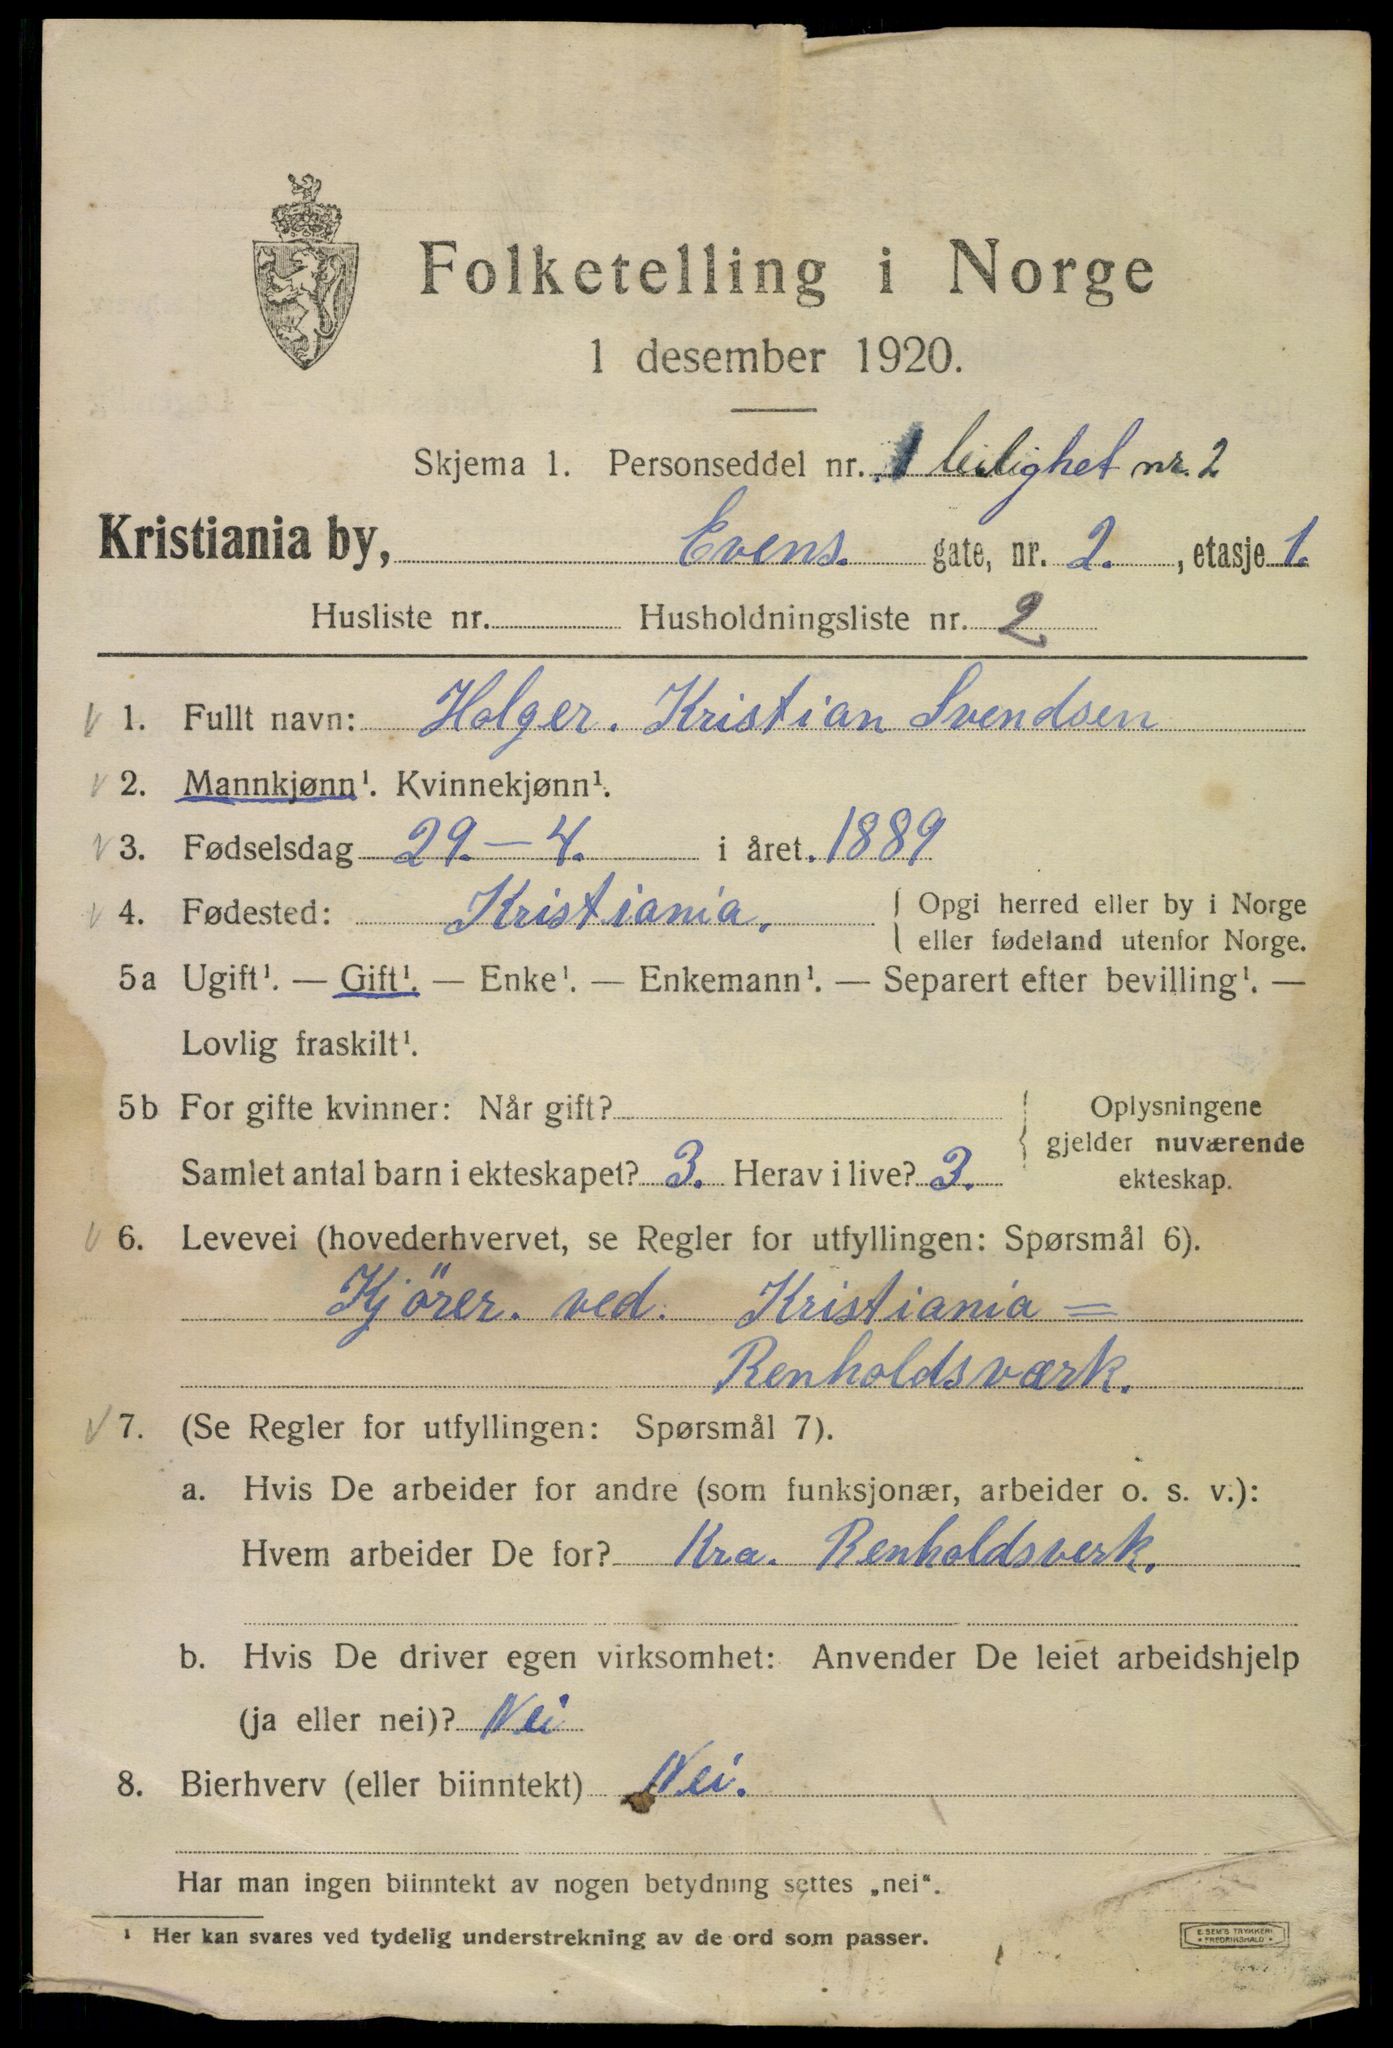 Folketelling i Norge
1 desember 1920.
Skjema 1. Personseddel nr. 1 leilighet nr. 2
Kristiania by, Evens. gate, nr. 2. , etasje 1.
Husliste nr. Husholdningsliste nr. 2
1. Fullt navn: Holger. Kristian Svendsen
2. Mannkjønn¹. Kvinnekjønn¹.
3. Fødselsdag 29. – 4. i året 1889
4. Fødested: Kristiania. { Opgi herred eller by i Norge
eller fødeland utenfor Norge.
5a Ugift¹. — Gift¹. — Enke¹. — Enkemann¹. — Separert efter bevilling¹. —
Lovlig fraskilt¹.
5b For gifte kvinner: Når gift? { Oplysningene
gjelder nuværende
Samlet antal barn i ekteskapet? 3. Herav i live? 3. ekteskap.
6. Levevei (hovederhvervet, se Regler for utfyllingen: Spørsmål 6).
Kjörer. ved. Kristiania =
Renholdsværk.
7. (Se Regler for utfyllingen: Spørsmål 7).
a. Hvis De arbeider for andre (som funksjonær, arbeider o. s. v.):
Hvem arbeider De for? Kra. Renholdsverk.
b. Hvis De driver egen virksomhet: Anvender De leiet arbeidshjelp
(ja eller nei)? Nei
8. Bierhverv (eller biinntekt) Nei.
Har man ingen biinntekt av nogen betydning settes „nei“.
¹ Her kan svares ved tydelig understrekning av de ord som passer.
E. SEM'S TRYKKERI
* FREDRIKSHALD *